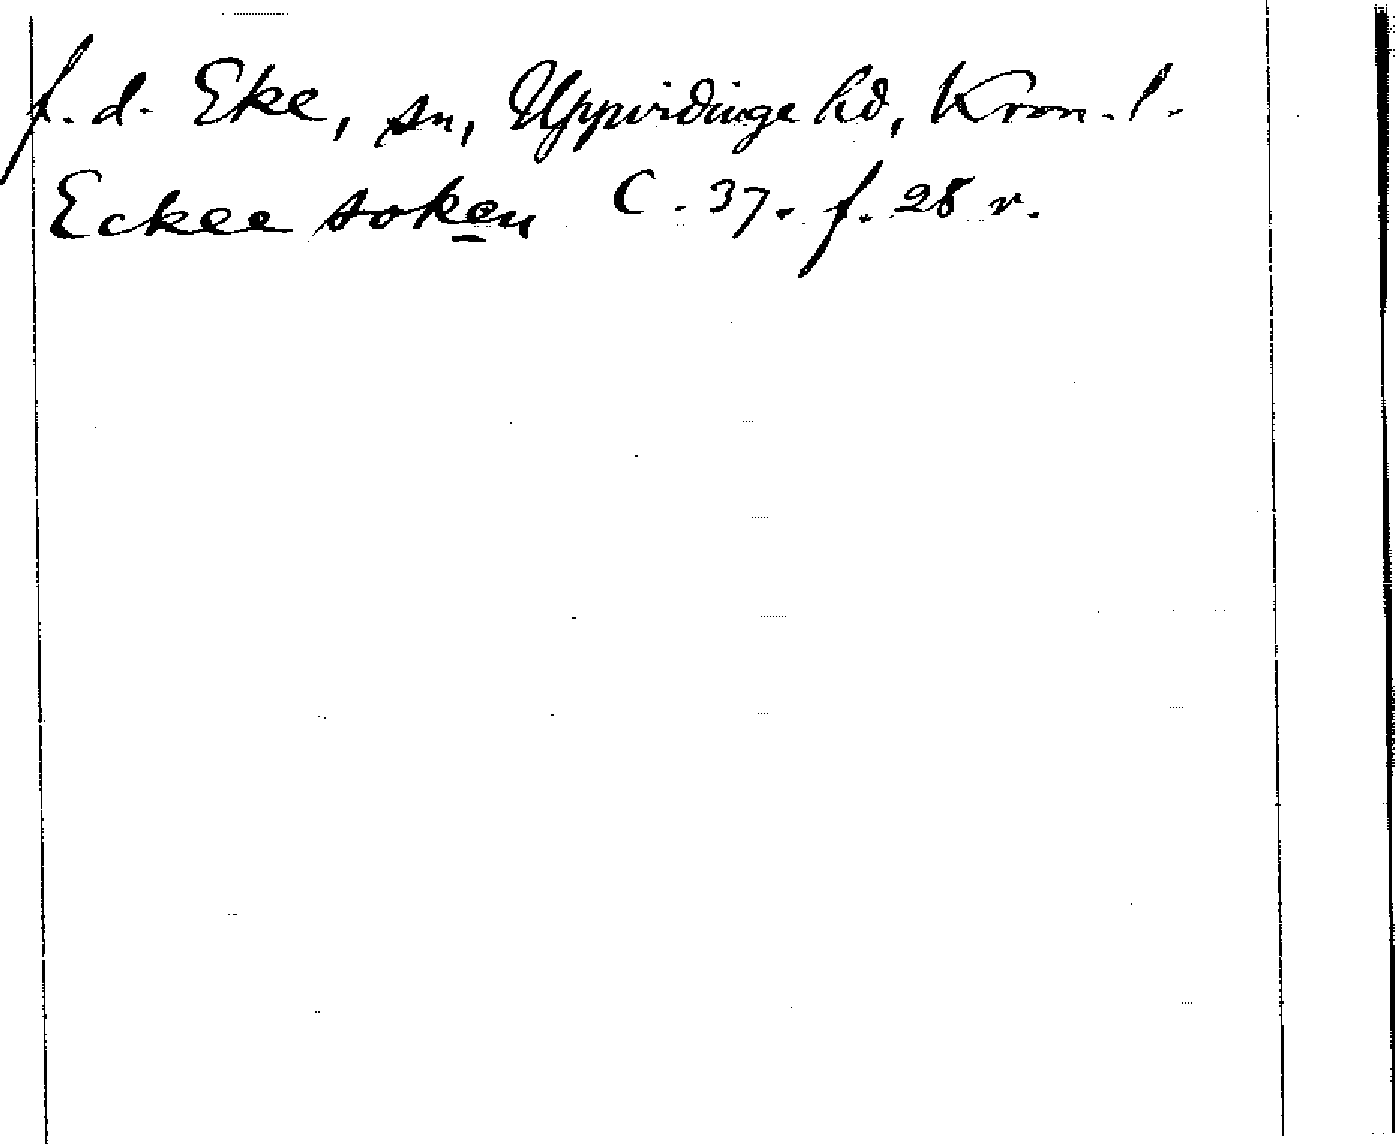 f. d. Eke, sn, Uppvidinge hd, Kron. l.
Eckee soken C. 37. f. 28 r.